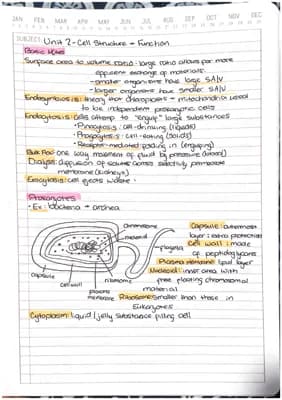 JAN FEB MAR APR MAY JUN JUL AUG SEP OCT NOV DEC
SUBJECT: Unit 2 - Cell Structure + Function
Basic Notes
Surface area to volume ratio: large ratio allows for more
efficient exchange of materials.
- smaller organisms have large SA/V
- larger organisms have smaller SA/V
Endosymbiosis: theory that chloroplasts + mitochondria used
to be independent prokaryotic cells
Endocytosis: cells attempt to "engulf" large substances
• Pinocytosis: cell-drinking (liquids)
• Phagocytosis: cell-eating (solids)
• Receptor-mediated: pulling in (engulfing)
Bulk Flow: one way movement of fluid by pressure (blood)
Dialysis: diffusion of solutes across selectively permeable
membrane (kidneys)
Exocytosis: cell ejects waste
Prokaryotes
- Ex: bacteria + archea
chromosome
nucleoid
plasmid
capsule
cell wall
plasma
membrane
ribosome
Capsule: outermost
layer: extra protection
Cell wall: made
of peptidoglycans
Plasma Membrane: lipid layer
Nucleoid: inner area with
free floating chromosomal
material
Ribosome: smaller than those in
Eukaryotes
Cytoplasm: liquid/jelly substance filling cell